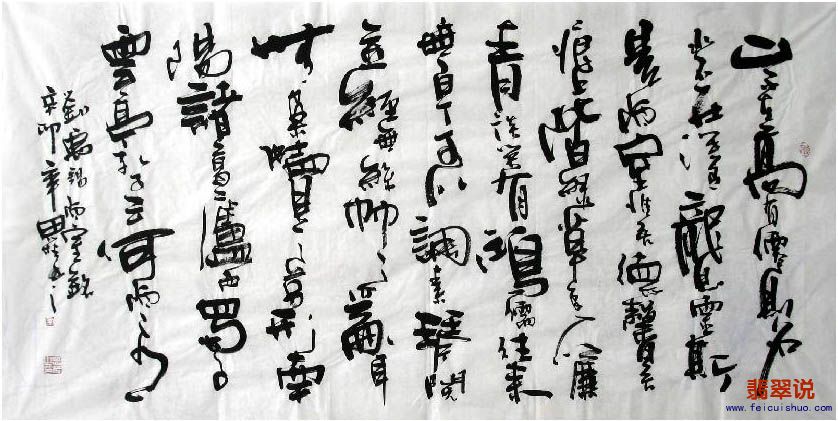 山不在高有僊則名
水不在深有龍則靈斯
是陋室惟吾德馨苔
痕上階綠草色入簾
青談笑有鴻儒往來
無白丁可以調素琴閱
金經無絲竹之亂耳
無案牘之勞形南
陽諸葛廬西蜀子
雲亭孔子云何陋之有
劉禹錫陋室銘
辛卯年
翡翠说
www.feicuishuo.com